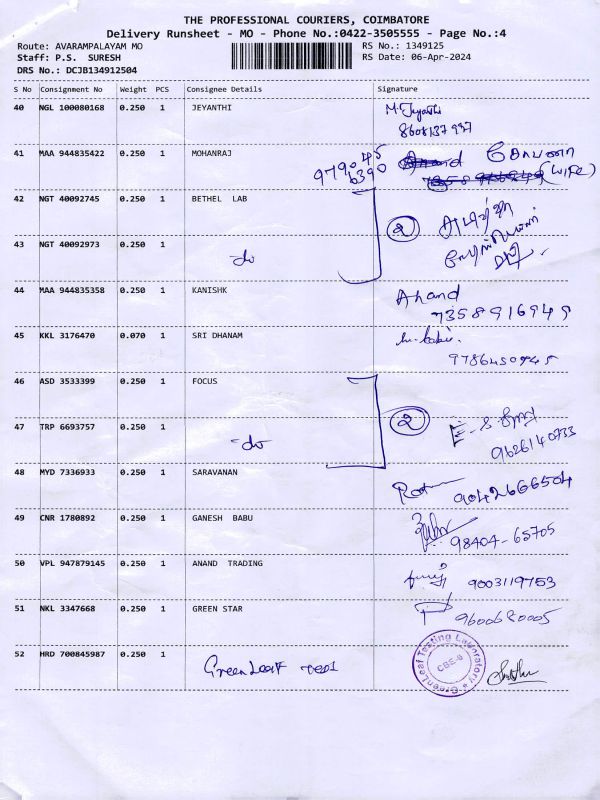 THE PROFESSIONAL COURIERS, COIMBATORE
Delivery Runsheet - MO - Phone No.:0422-3505555 - Page No.:4
Route: AVARAMPALAYAM MO RS No.: 1349125
Staff: P.S. SURESH RS Date: 06-Apr-2024
DRS No.: DCJB134912504
S No Consignment No Weight PCS Consignee Details Signature
40 NGL 100080168 0.250 1 JEYANTHI M. Jeyanthi
8608137997
41 MAA 944835422 0.250 1 MOHANRAJ 979045 கோபனா
6390 (wife)
42 NGT 40092745 0.250 1 BETHEL LAB 2
43 NGT 40092973 0.250 1 -do
44 MAA 944835358 0.250 1 KANISHK Anand
7358916949
45 KKL 3176470 0.070 1 SRI DHANAM
9786450945
46 ASD 3533399 0.250 1 FOCUS
47 TRP 6693757 0.250 1 -do 2
9626140733
48 MYD 7336933 0.250 1 SARAVANAN 9042666504
49 CNR 1780892 0.250 1 GANESH BABU 98404-65705
50 VPL 947879145 0.250 1 ANAND TRADING 9003119753
51 NKL 3347668 0.250 1 GREEN STAR 9600680005
52 HRD 700845987 0.250 1 GreenLeaf GreenLeaf Testing Laboratory CBE-6